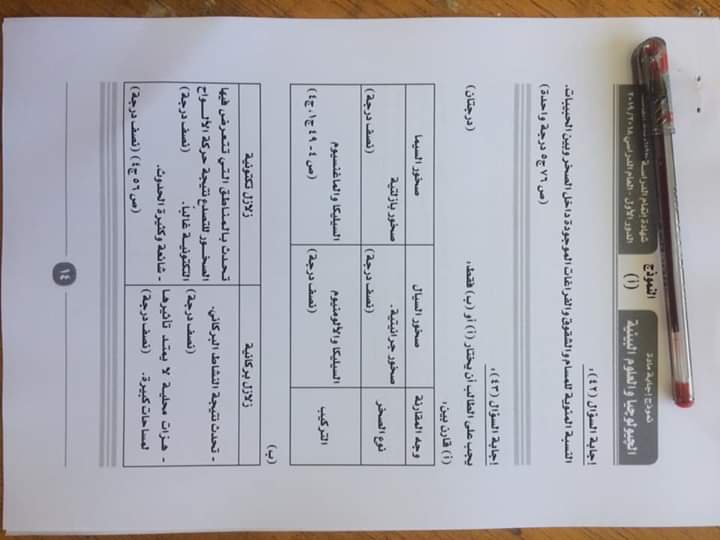 شهادة إتمام الدراسة
الدور الأول - العام الدراسى ٢٠١٨/٢٠١٩
النموذج
(أ)
نموذج إجابة مادة
الجيولوجيا والعلوم البيئية
إجابة السؤال (٤٢):
النسبة المئوية للمسام والشقوق والفراغات الموجودة داخل الصخر وبين الحبيبات.
(ص ٧٦ ج٥ درجة واحدة)
إجابة السؤال (٤٣):
يجب على الطالب أن يختار (أ) أو (ب) فقط: (درجتان)
(أ) قارن بين:
وجه المقارنة صخور السيال صخور السيما
نوع الصخر صخور جرانيتية. صخور بازلتية
(نصف درجة) (نصف درجة)
التركيب السيليكا والألومنيوم السيليكا والماغنسيوم
(نصف درجة) (ص ٤ - ٤٩ ج١، ج٤)
(ب)
زلازل بركانية زلازل تكتونية
- تحدث نتيجة النشاط البركاني. تحدث بالمناطق التي تتعرض فيها
(نصف درجة) الصخور للتصدع نتيجة حركة الألواح
- هزات محلية لا يمتد تأثيرها التكتونية غالباً. (نصف درجة)
لمساحات كبيرة. (نصف درجة) - شائعة وكثيرة الحدوث.
(ص ٥٦ ج٤) (نصف درجة)
١٤